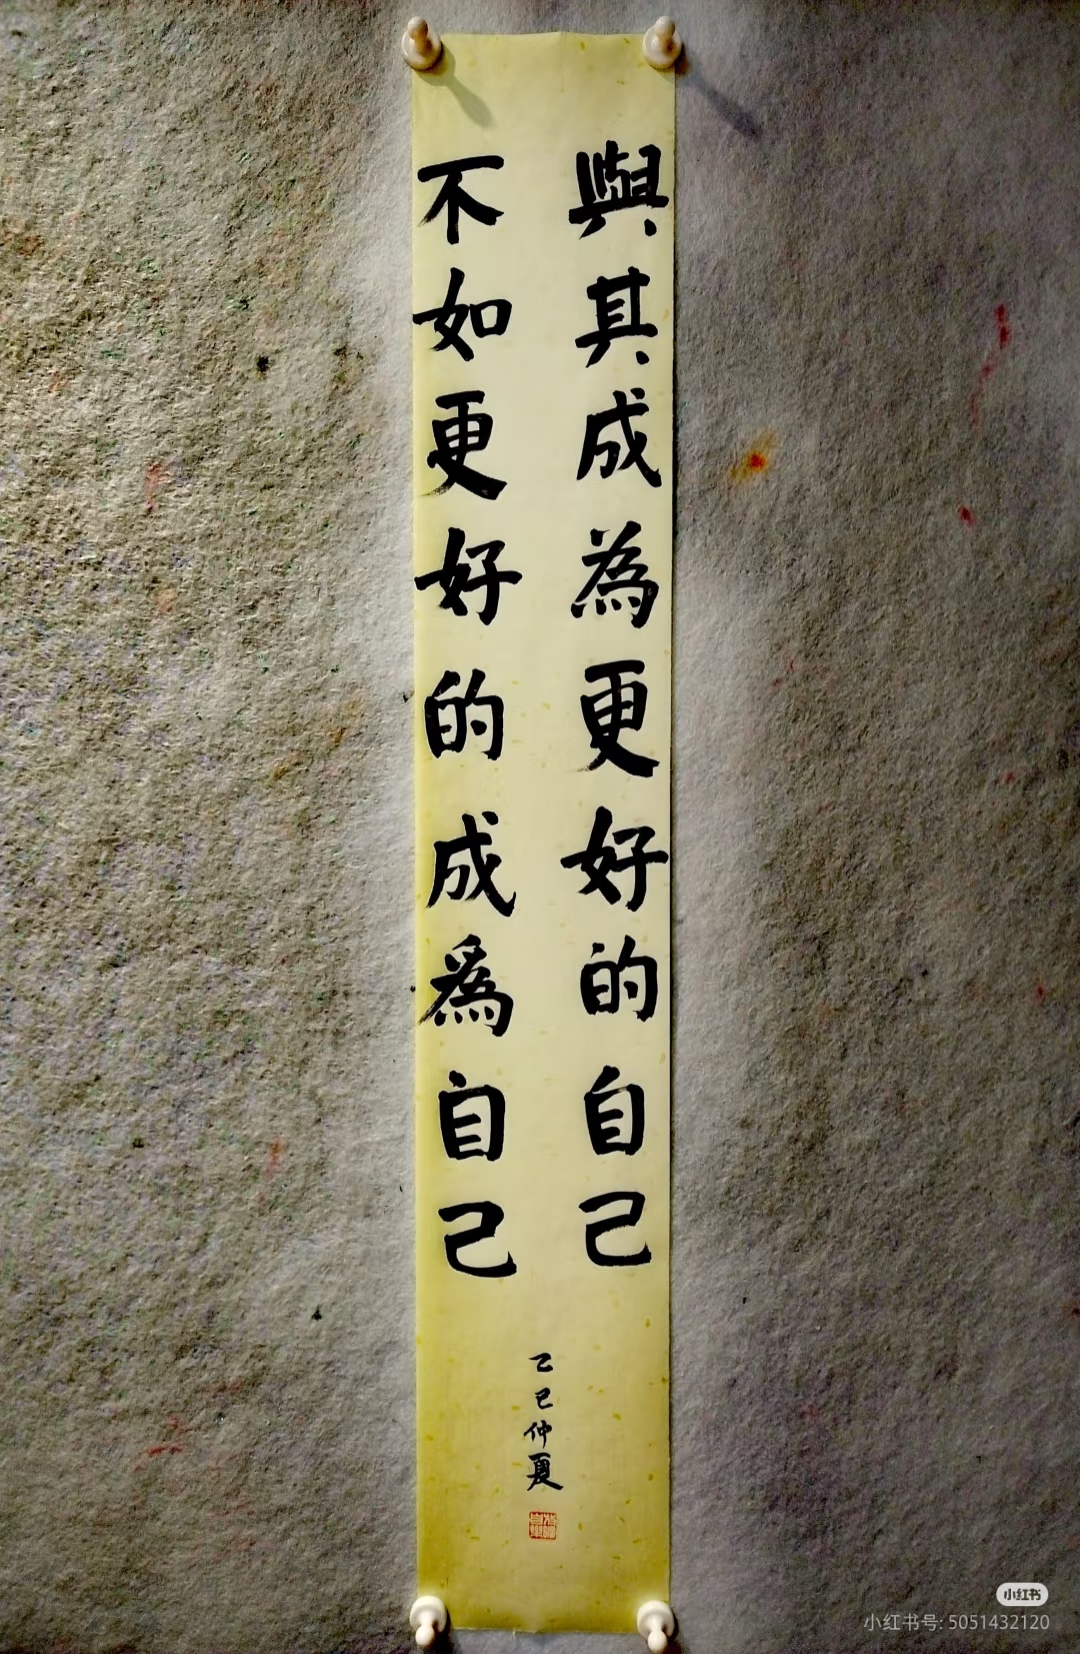 與其成為更好的自己
不如更好的成爲自己
乙巳仲夏
小红书
小红书号: 5051432120